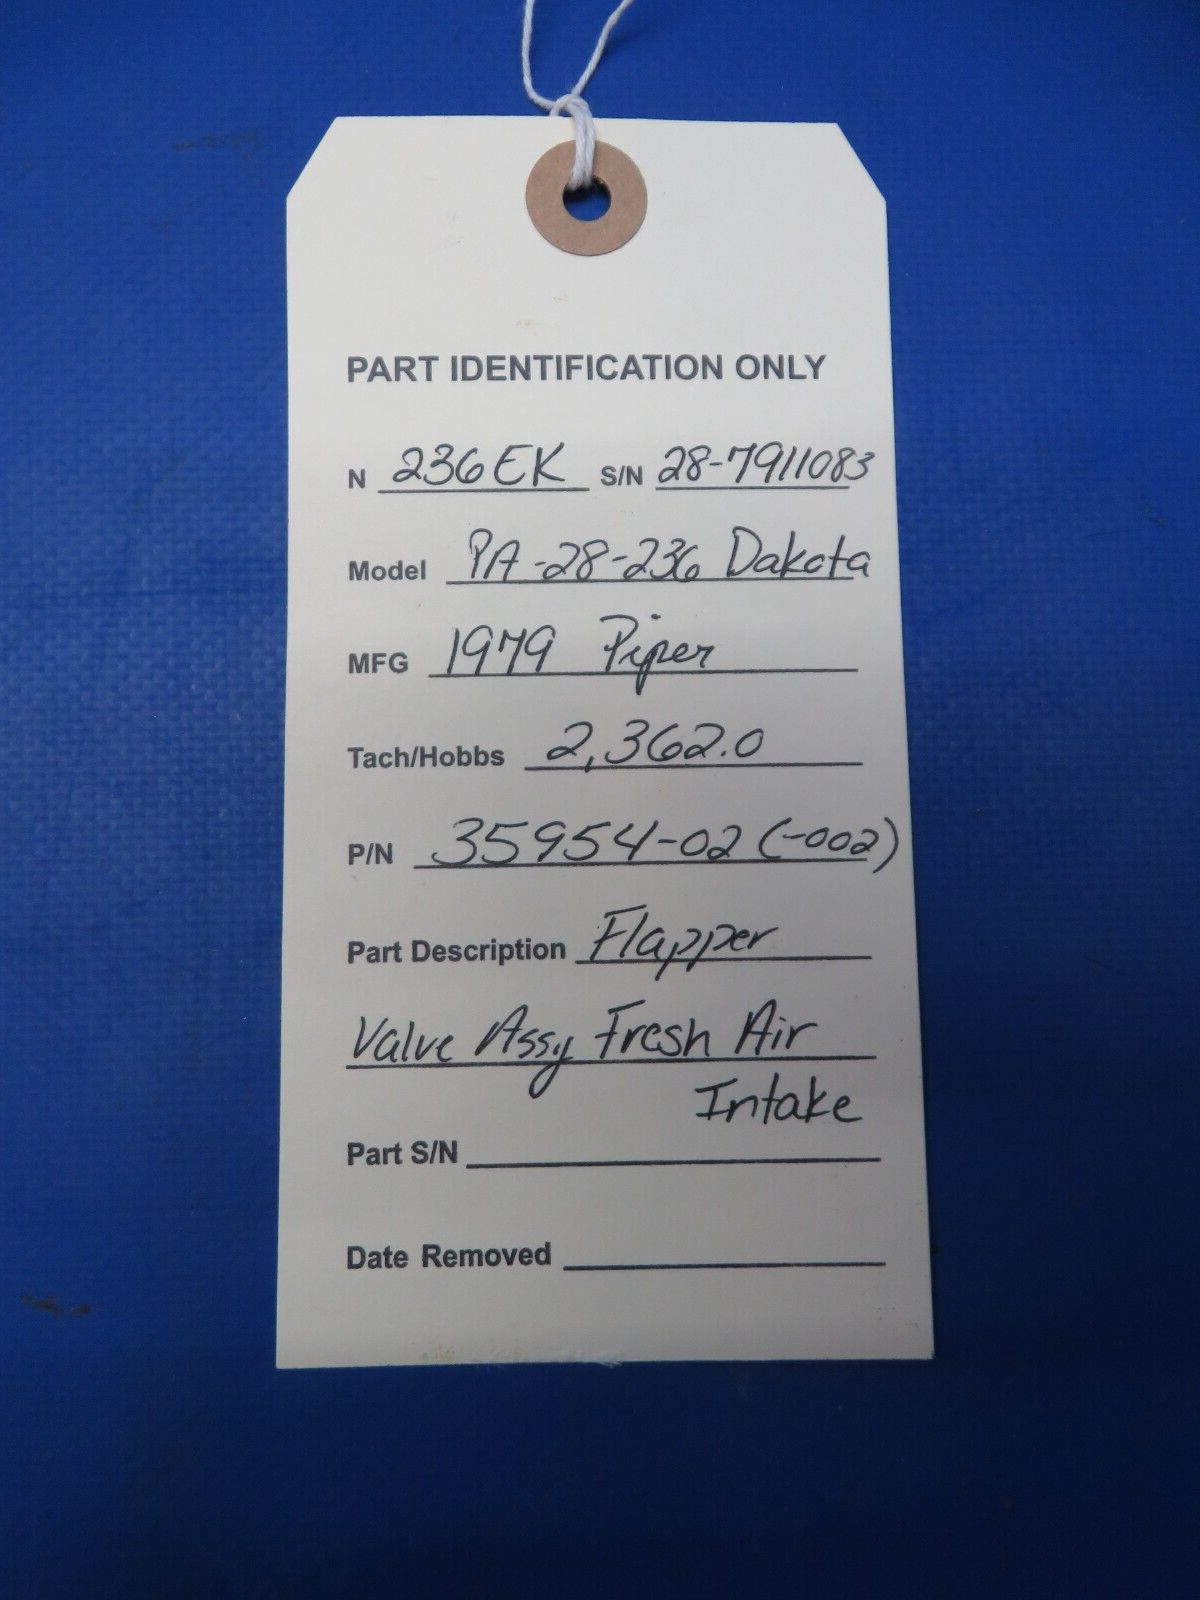 PART IDENTIFICATION ONLY
N 236EK S/N 28-7911083
Model PA-28-236 Dakota
MFG 1979 Piper
Tach/Hobbs 2,362.0
P/N 35954-02 (-002)
Part Description Flapper
Valve Assy Fresh Air
Intake
Part S/N
Date Removed